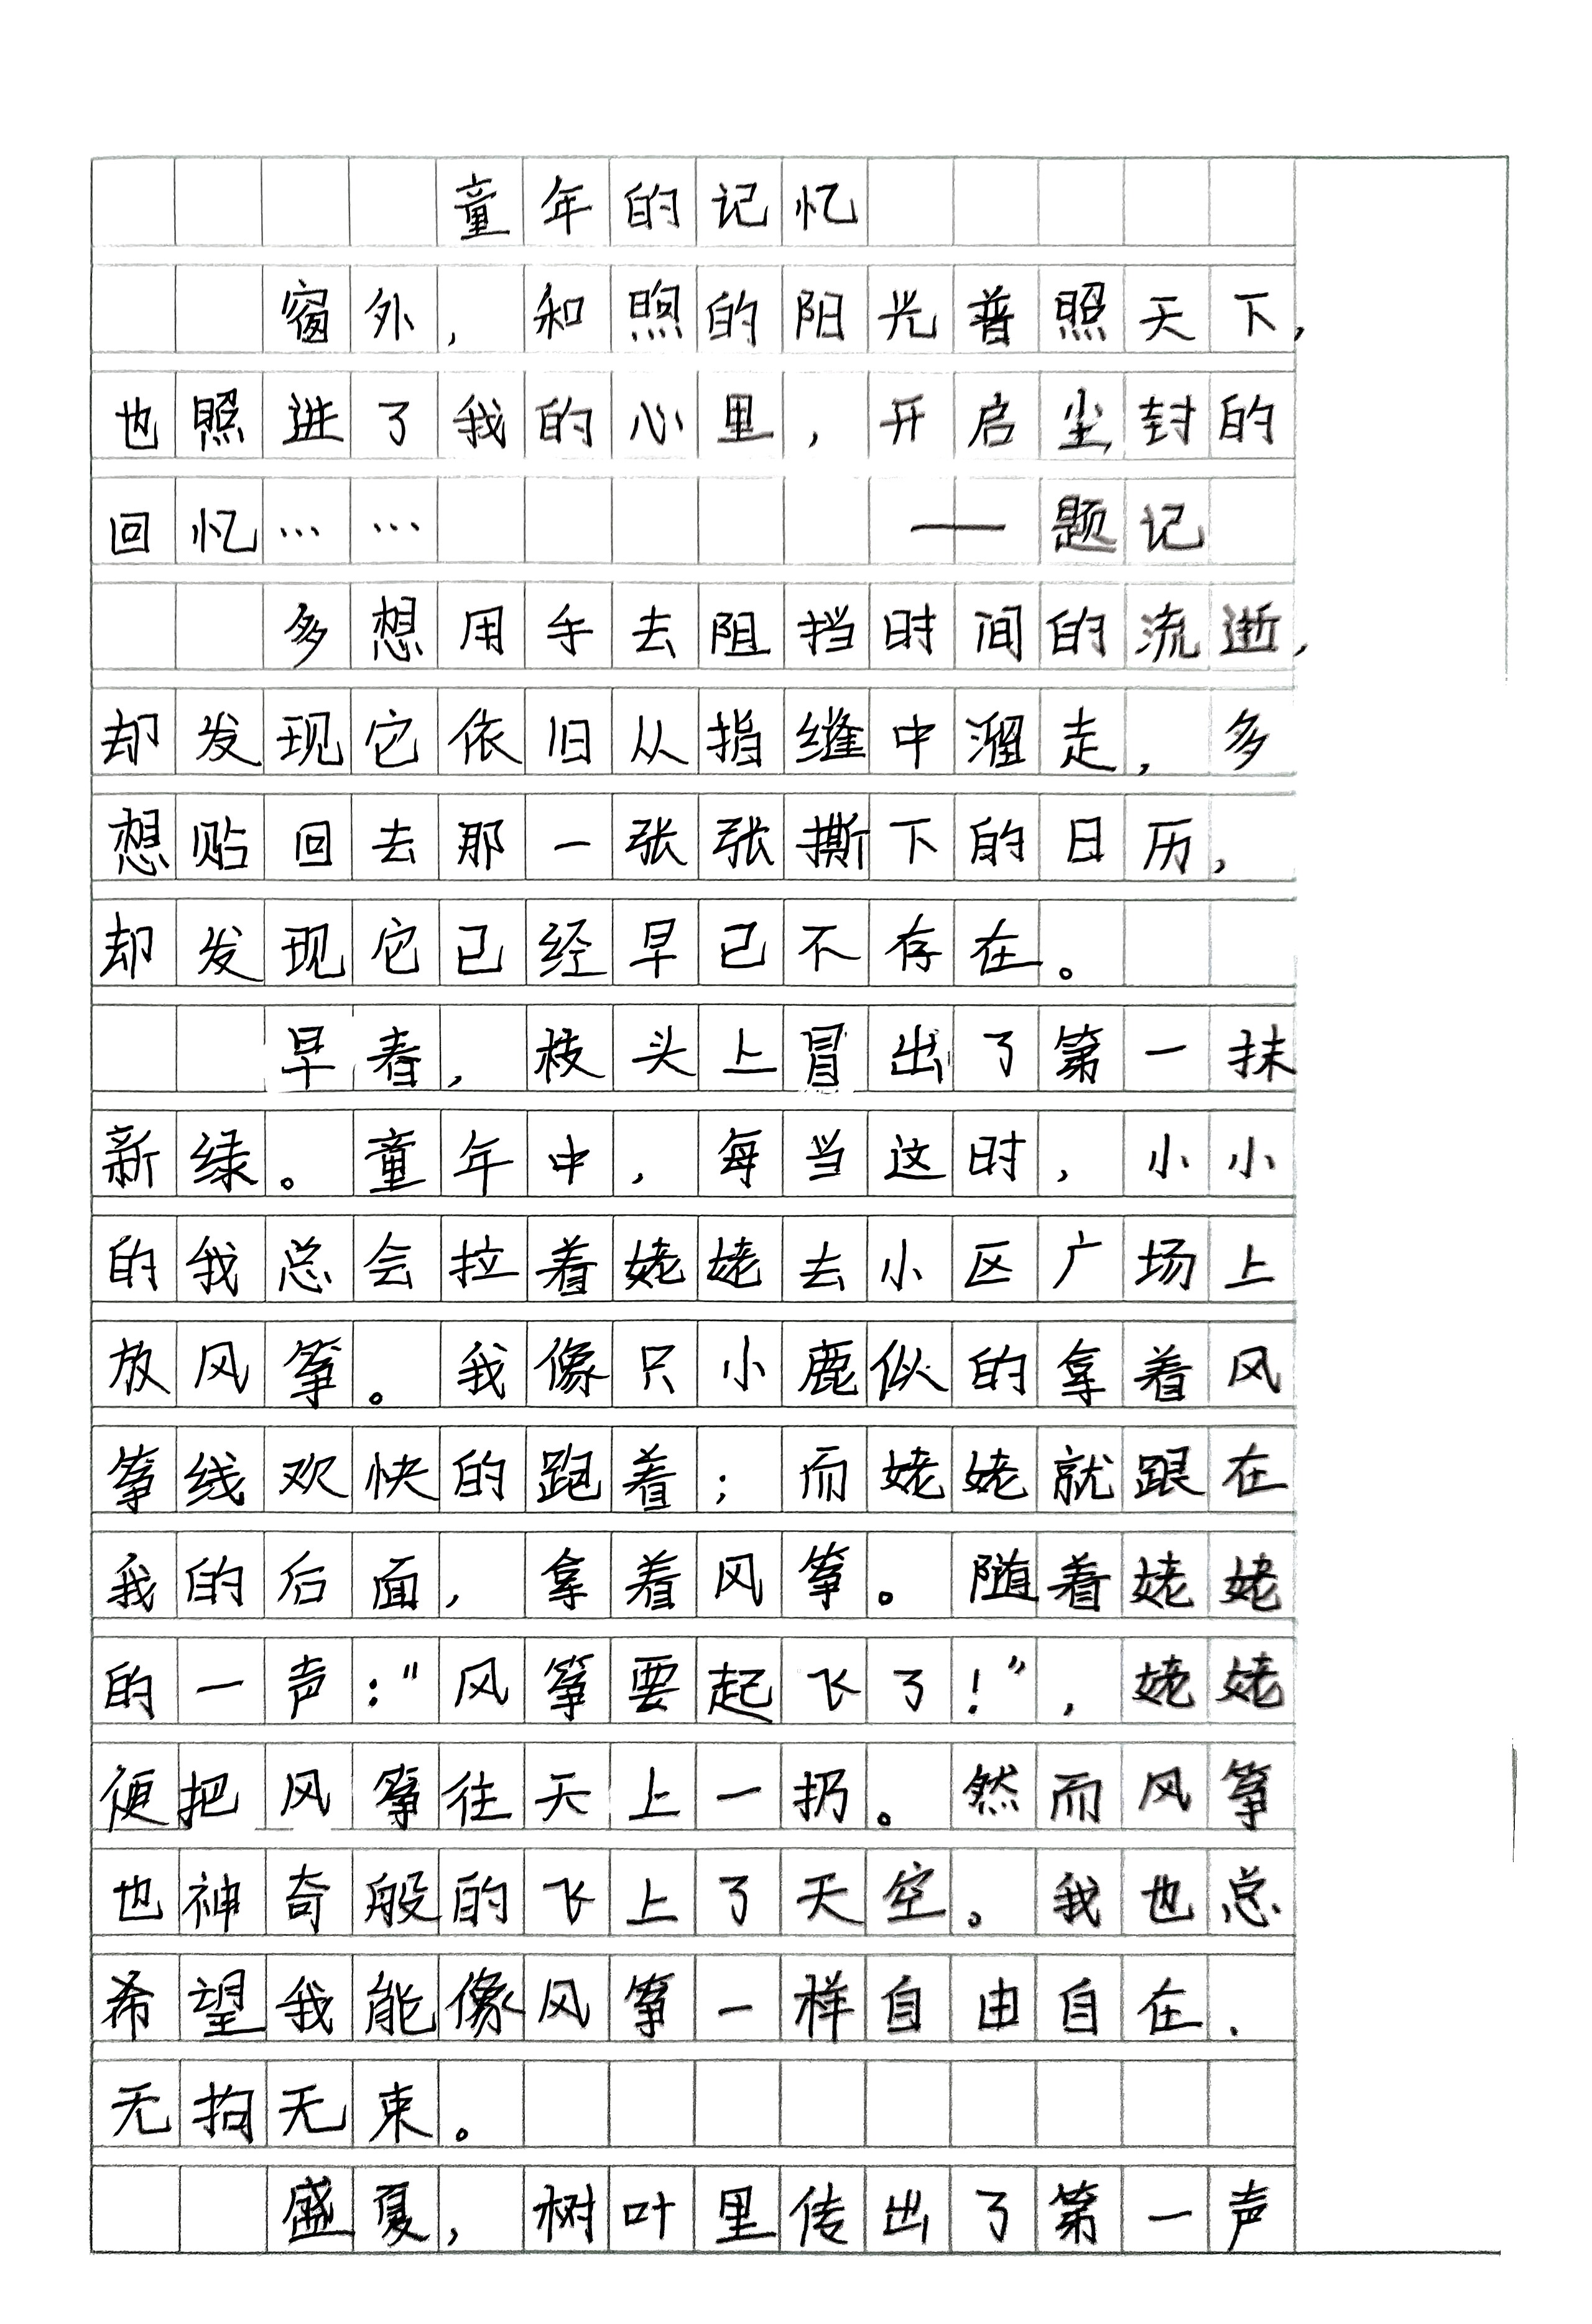 童年的记忆
窗外，和煦的阳光普照天下，
也照进了我的心里，开启尘封的
回忆…… ——题记
多想用手去阻挡时间的流逝，
却发现它依旧从指缝中溜走，多
想贴回去那一张张撕下的日历，
却发现它已经早已不存在。
早春，枝头上冒出了第一抹
新绿。童年中，每当这时，小小
的我总会拉着姥姥去小区广场上
放风筝。我像只小鹿似的拿着风
筝线欢快的跑着；而姥姥就跟在
我的后面，拿着风筝。随着姥姥
的一声："风筝要起飞了！"，姥姥
便把风筝往天上一扔。然而风筝
也神奇般的飞上了天空。我也总
希望我能像风筝一样自由自在、
无拘无束。
盛夏，树叶里传出了第一声